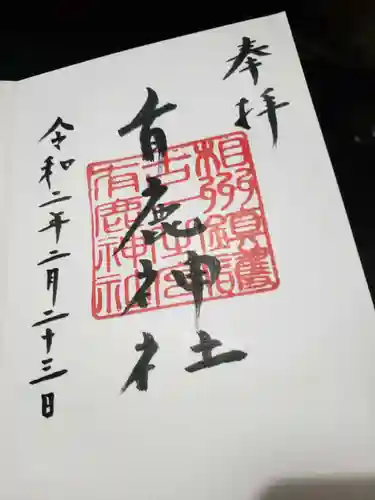 奉拝
有鹿神社
相州鎮護
五ノ宮
有鹿神社
令和二年二月二十三日